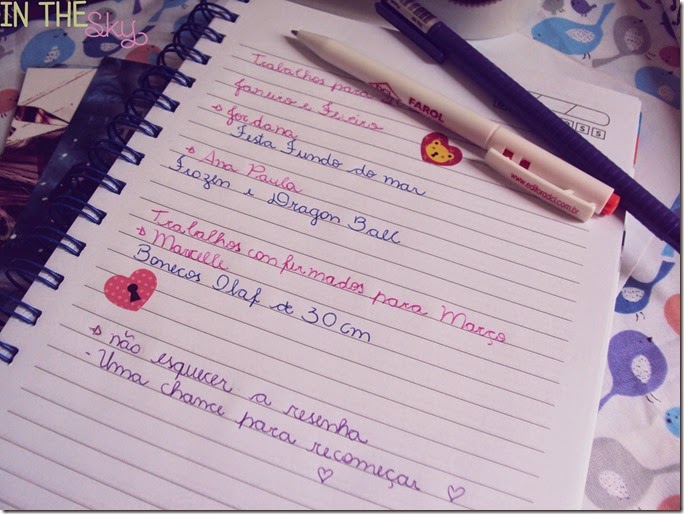 IN THE
Sky
Trabalhos para
Janeiro e Fevreiro
Jordana
Festa Fundo do mar
Ana Paula
Frozen e Dragon Ball
Trabalhos confirmados para Março
Marcelle
Bonecos Olaf de 30 cm
não esquecer a resenha
- Uma chance para recomeçar ♡ ♡
FAROL
www.editoradcl.com.br
S S